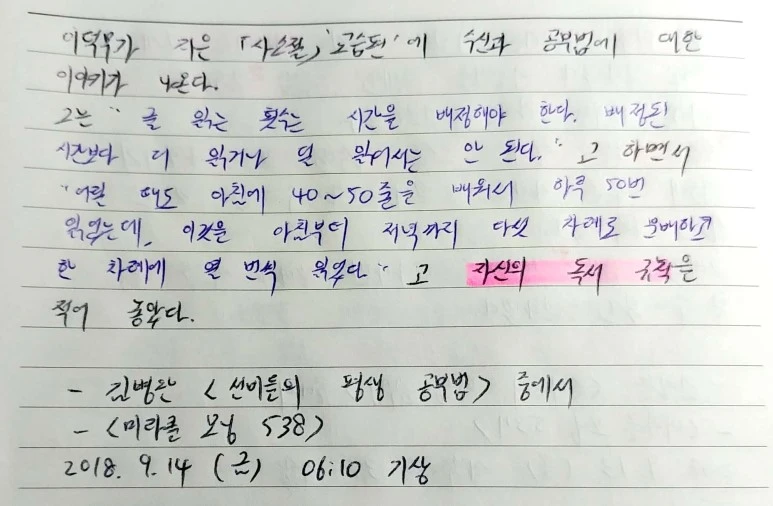 이덕무가 지은 「사소절」'교습편'에 수신과 공부법에 대한
이야기가 나온다.
그는 "글 읽는 횟수는 시간을 배정해야 한다. 배정된
시간보다 더 읽거나 덜 읽어서는 안 된다." 고 하면서
"어릴 때도 아침에 40~50줄을 배워서 하루 50번
읽었는데, 이것을 아침부터 저녁까지 다섯 차례로 분배하고
한 차례에 열 번씩 읽었다" 고 자신의 독서 규칙을
적어 놓았다.
- 김병완 <선비들의 평생 공부법> 중에서
- <미라클 모닝 538>
2018. 9. 14 (금) 06:10 기상